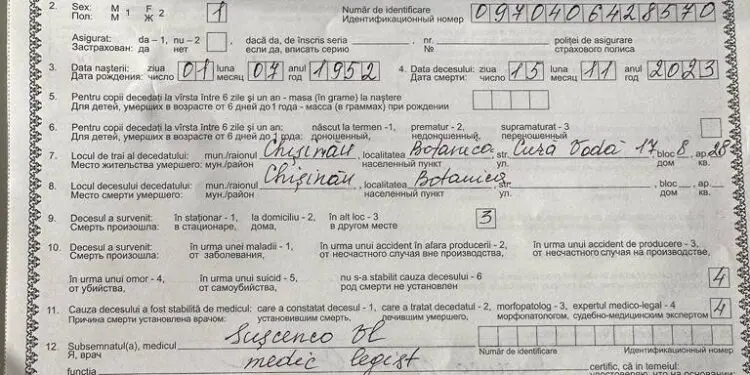 2. Sex: M 1 F 2 1 Număr de identificare 0970406428570
Пол: М Ж Идентификационный номер
Asigurat: da – 1, nu – 2 , dacă da, de înscris seria nr. poliței de asigurare
Застрахован: да нет если да, вписать серию № страхового полиса
3. Data nașterii: ziua 01 luna 07 anul 1952 4. Data decesului: ziua 15 luna 11 anul 2023
Дата рождения: число месяц год Дата смерти: число месяц год
5. Pentru copii decedați la vîrsta între 6 zile și un an - masa (în grame) la naștere
Для детей, умерших в возрасте от 6 дней до 1 года - масса (в граммах) при рождении
6. Pentru copii decedați la vîrsta între 6 zile și un an: născut la termen -1, prematur - 2, supramaturat - 3
Для детей, умерших в возрасте от 6 дней до 1 года: доношенный, недоношенный, переношенный
7. Locul de trai al decedatului: mun./raionul Chișinău, localitatea Botanica, str. 17 bloc 8, ap. 28
Место жительства умершего: мун./район населенный пункт ул. дом кв.
8. Locul decesului decedatului: mun./raionul Chișinău, localitatea Botanica, str. , bloc , ap.
Место смерти умершего: мун./район населенный пункт ул. дом кв.
9. Decesul a survenit: în staționar - 1, la domiciliu - 2, în alt loc - 3 3
Смерть произошла: в стационаре, дома, в другом месте
10. Decesul a survenit: în urma unei maladii - 1, în urma unui accident în afara producerii - 2, în urma unui accident de producere - 3,
Смерть произошла: от заболевания, от несчастного случая вне производства, от несчастного случая на производстве,
în urma unui omor - 4, în urma unui suicid - 5, nu s-a stabilit cauza decesului - 6 4
от убийства, от самоубийства, род смерти не установлен
11. Cauza decesului a fost stabilită de medicul: care a constatat decesul - 1, care a tratat decedatul - 2, morfopatolog - 3, expertul medico-legal - 4 4
Причина смерти установлена врачом: установившим смерть, лечившим умершего, морфопатологом, судебно-медицинским экспертом
12. Subsemnatul(a), medicul Sușcenco
Я, врач Număr de identificare Идентификационный номер
medic legist
funcția certific, că în temeiul: